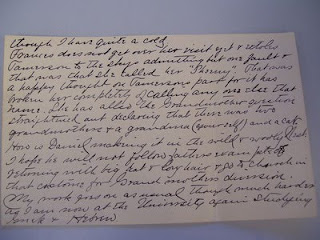 though I have quite a cold
Frances does not get over her visit yet & extolls
Vanerson to the skys admitting but one fault &
that was that she called her "Pheeny". That was
a happy thought on Vanersons part for it has
broken her completely of calling any one else that
name. She has also the Grandmother question
straightened out declaring that there was two
grandmothers & a grandma (yourself) and a
How is Daniel making it in the wild & wooly West.
I hope he will not follow fathers example
returning with big hat & long hair & go to Church in
that costume for Grand mothers diversion.
My work goes on as usual though much harder
by I am now at the University again studying
Greek & Hebrew